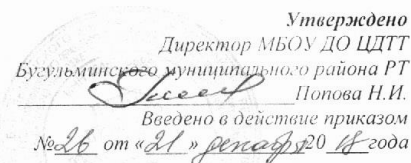 Утверждено
Директор МБОУ ДО ЦДТТ
Бугульминского муниципального района РТ
Попова Н.И.
Введено в действие приказом
№ 26 от «21» декабря 20 18 года